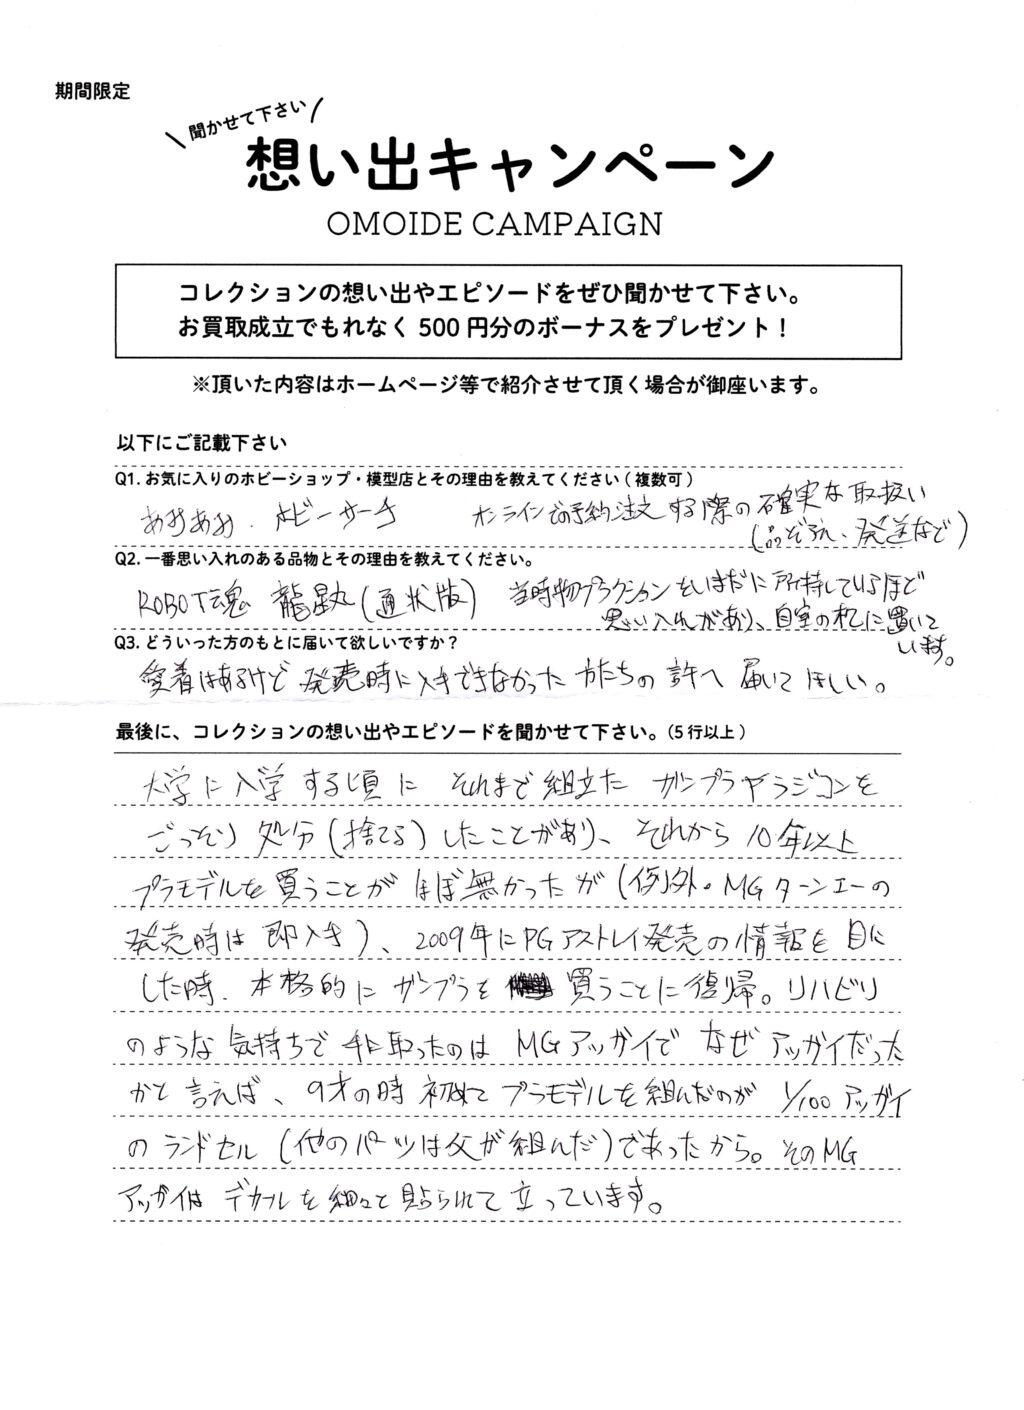 期間限定
聞かせて下さい
想い出キャンペーン
OMOIDE CAMPAIGN
コレクションの想い出やエピソードをぜひ聞かせて下さい。
お買取成立でもれなく 500 円分のボーナスをプレゼント!
※頂いた内容はホームページ等で紹介させて頂く場合が御座います。
以下にご記載下さい
Q1. お気に入りのホビーショップ・模型店とその理由を教えてください ( 複数可 )
あみあみ、ホビーサーチ オンラインで予約注文する際の確実な取扱い
(品ぞろえ、発送など)
Q2. 一番思い入れのある品物とその理由を教えてください。
ROBOT魂 龍星丸(通状版) 当時物プラクションをいまだに所持しているほど
思い入れがあり、自室の机に置いて
います。
Q3. どういった方のもとに届いて欲しいですか？
愛着はあるけど発売時に入手できなかった方たちの許へ届いてほしい。
最後に、コレクションの想い出やエピソードを聞かせて下さい。(5 行以上 )
大学に入学する頃に それまで組立た ガンプラやラジコンを
ごっそり処分(捨てる)したことがあり、それから10年以上
プラモデルを買うことがほぼ無かったが(例外・MGターンエーの
発売時は即入手)、2009年にPGアストレイ発売の情報を目に
した時、本格的にガンプラを 買うことに復帰。リハビリ
のような気持ちで手に取ったのはMGアッガイでなぜアッガイだった
かと言えば、9才の時初めてプラモデルを組んだのが1/100アッガイ
のランドセル(他のパーツは父が組んだ)であったから。そのMG
アッガイはデカールを細々と貼られて立っています。